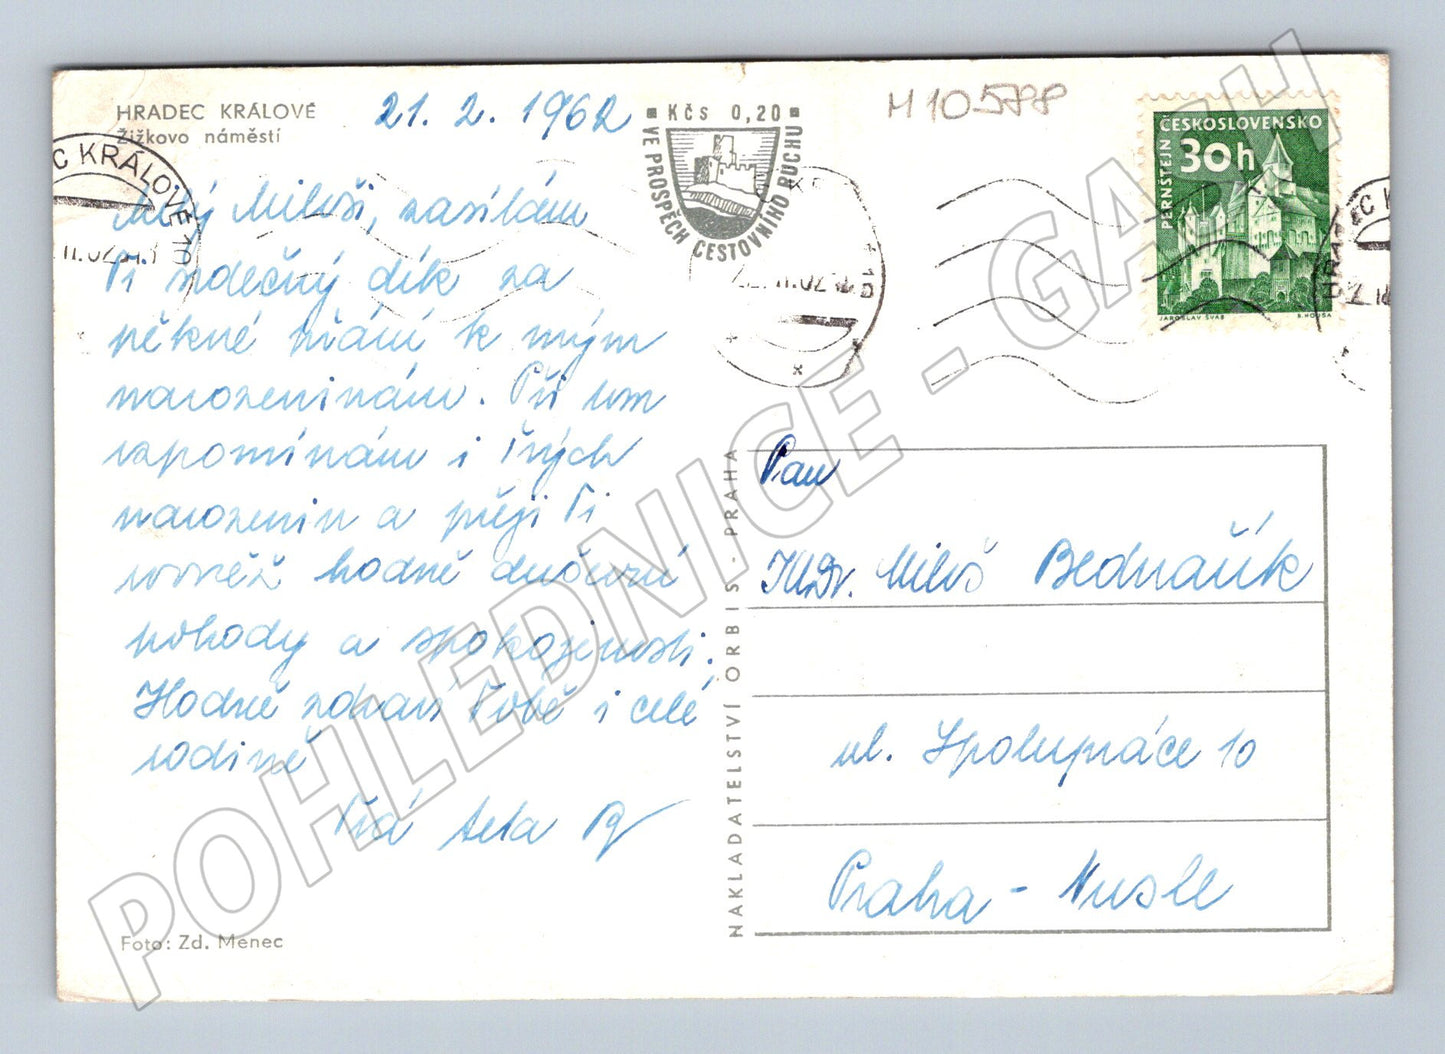 HRADEC KRÁLOVÉ
Žižkovo náměstí
21. 2. 1962
Milý Miloši, zasílám
Ti srdečný dík za
pěkné přání k mým
narozeninám. Při tom
vzpomínám i Tvých
narozenin a přeji Ti
rovněž hodně duševní
pohody a spokojenosti.
Hodně zdraví Tobě i celé
rodině
Tvá teta
Foto: Zd. Menec
Kčs 0,20
VE PROSPĚCH CESTOVNÍHO RUCHU
M 10588
ČESKOSLOVENSKO
PERNŠTEJN
30h
JAROSLAV ŠVÁB
B. HOUSA
C KRÁLOVÉ 1
NAKLADATELSTVÍ ORBIS - PRAHA
Pan
JUDr. Miloš Bednařík
ul. Spolupráce 10
Praha - Nusle
POHLEDNICE - GAZU